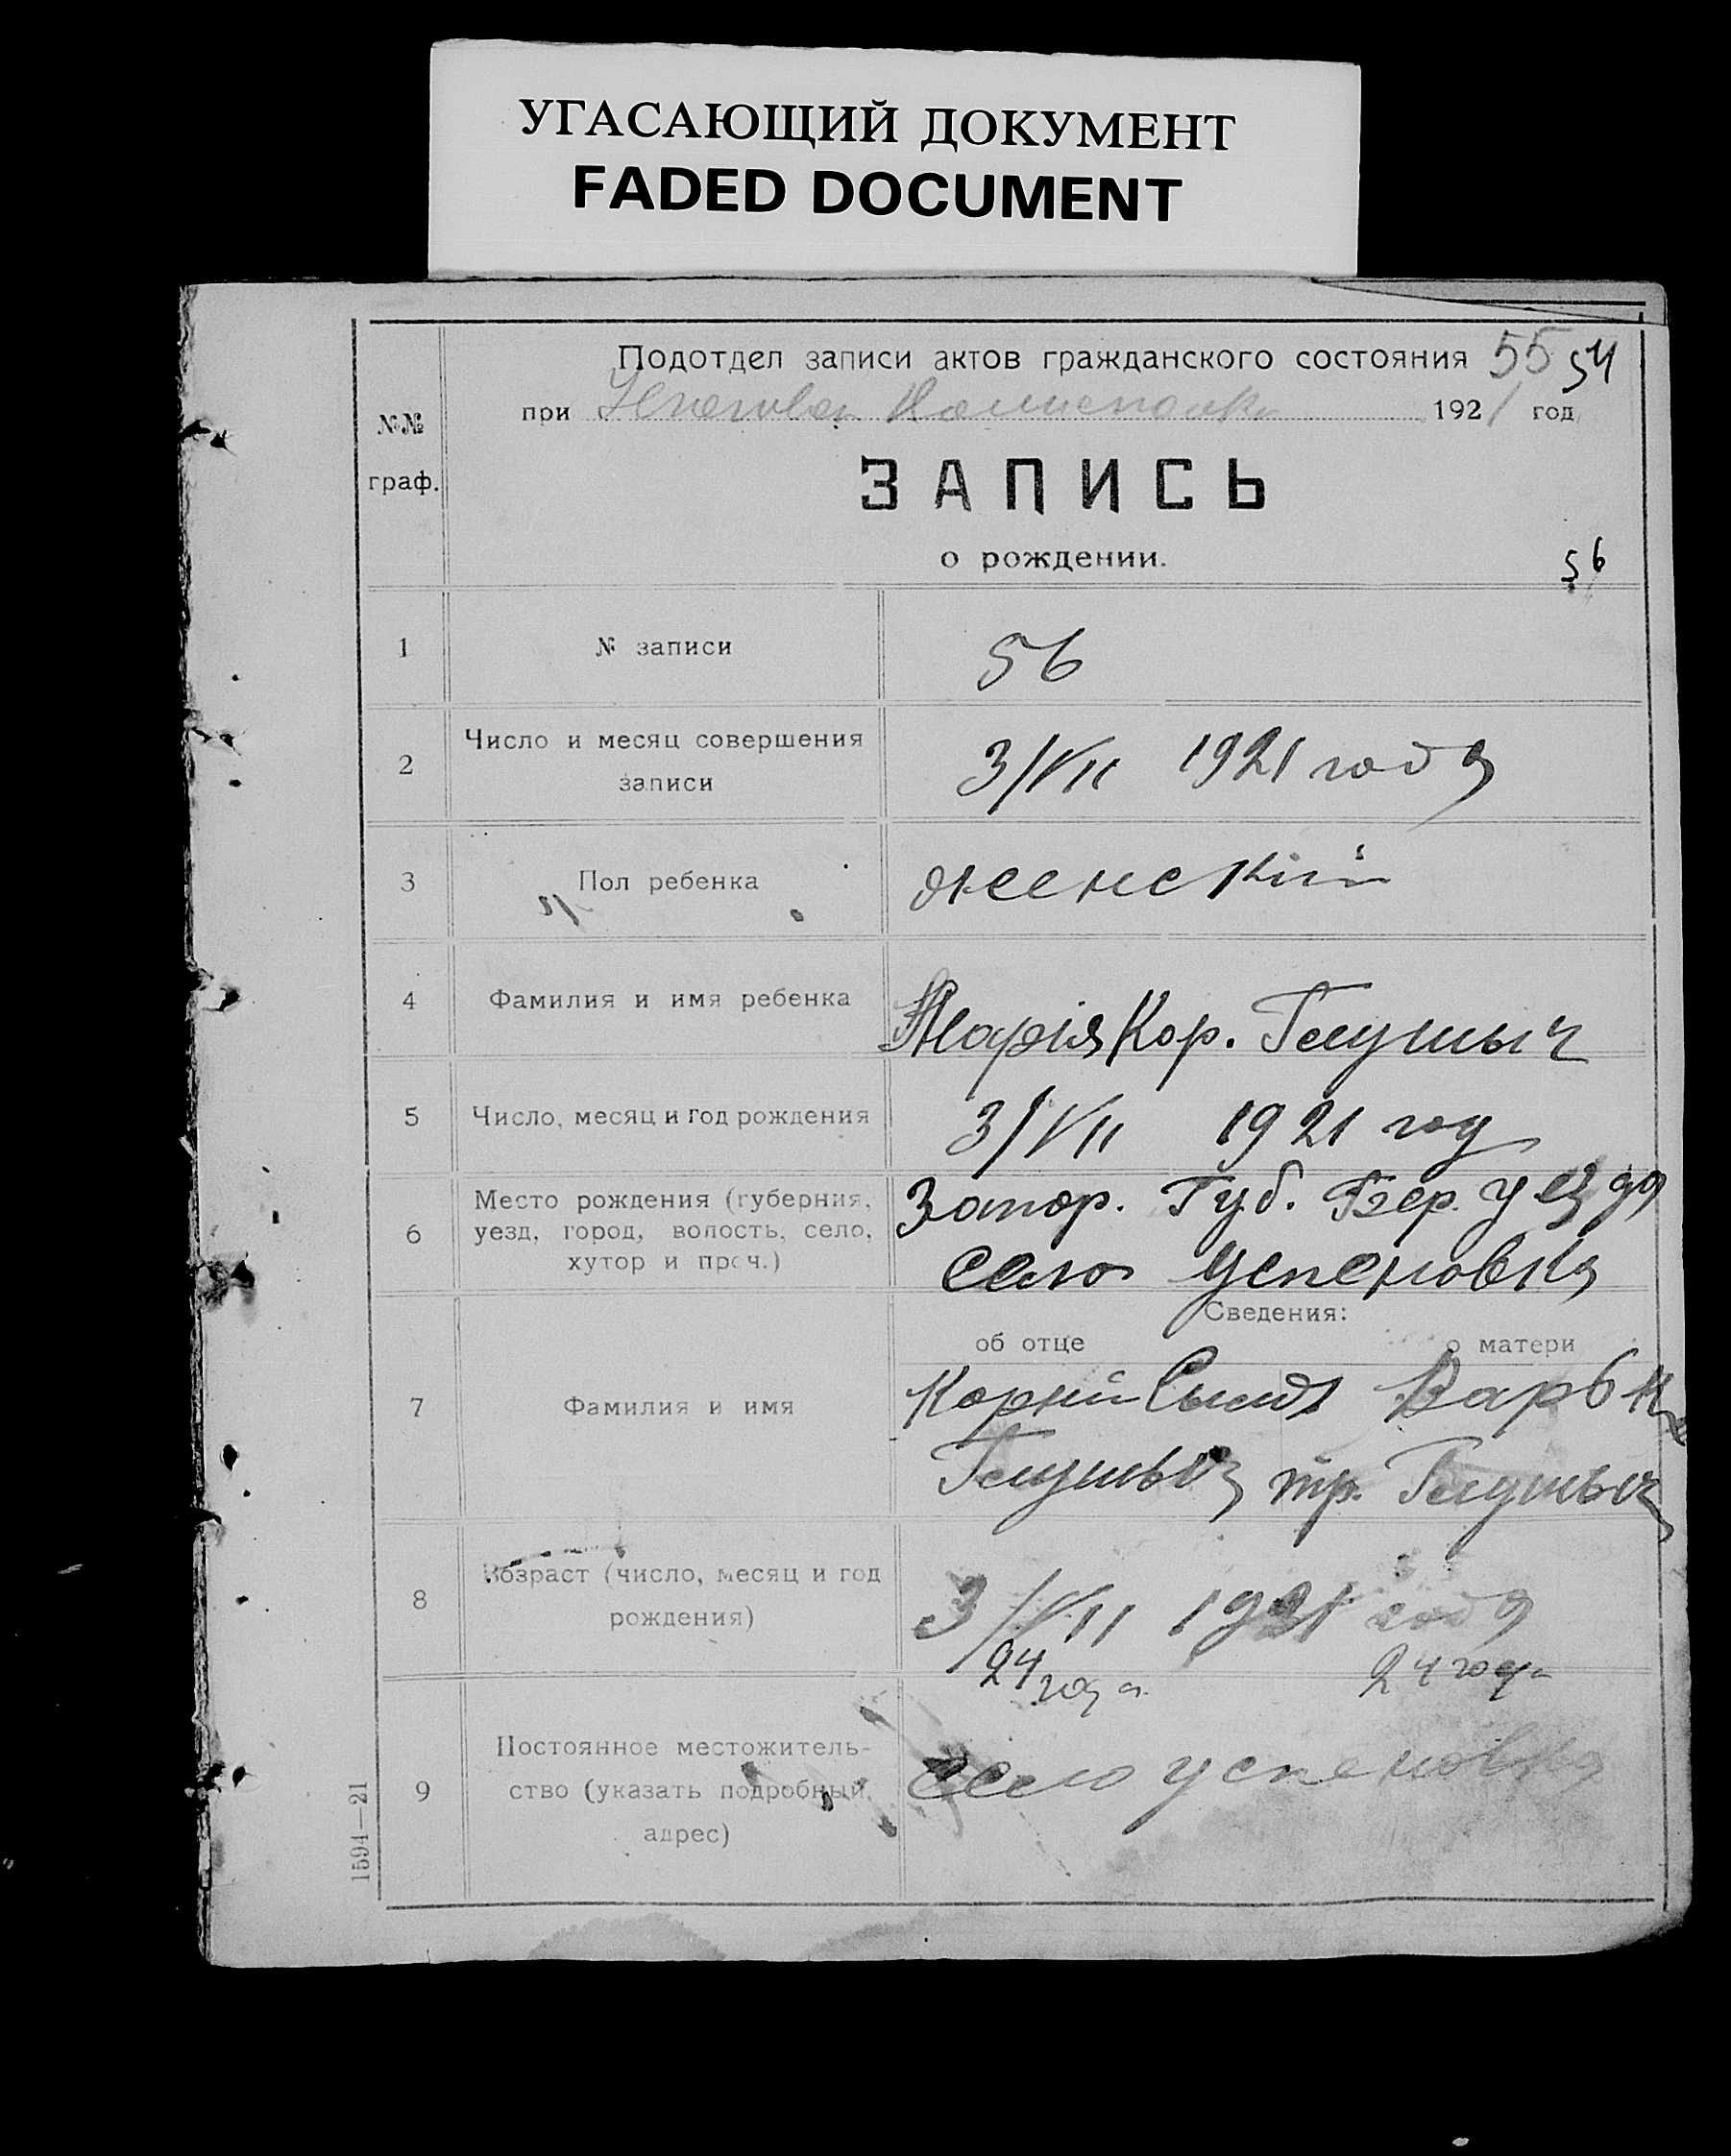 УГАСАЮЩИЙ ДОКУМЕНТ
FADED DOCUMENT
Подотдел записи актов гражданского состояния 55 54
при 1921 год
№№
граф.
ЗАПИСЬ
о рождении.
56
1 № записи 56
2 Число и месяц совершения
записи
3/VII 1921 года
3 Пол ребенка женский
4 Фамилия и имя ребенка Марія Кор.
5 Число, месяц и год рождения 3/VII 1921 год
6 Место рождения (губерния,
уезд, город, волость, село,
хутор и проч.)
Запор. Губ. Бер. уезда
село Успеновка
Сведения:
об отце о матери
7 Фамилия и имя
Корній
8 Возраст (число, месяц и год
рождения)
3/VII 1921 года
24 года 24 года
9 Постоянное местожитель-
ство (указать подробный
адрес)
село успеновка
1594—21